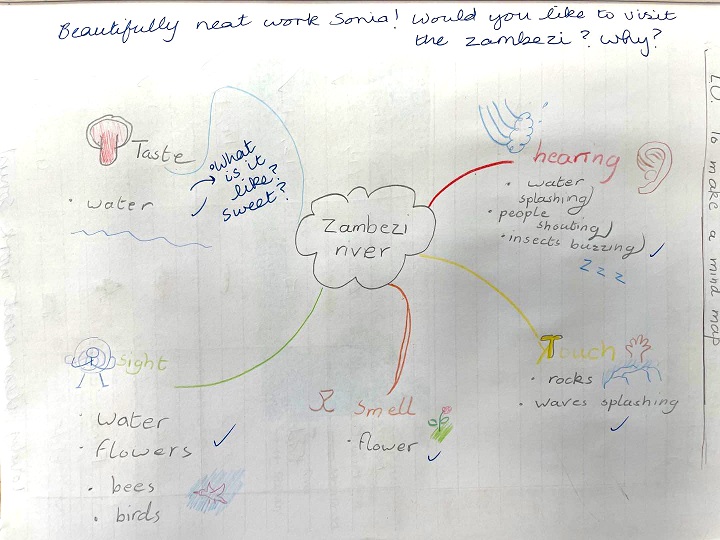 Beautifully neat work Sonia! Would you like to visit
the Zambezi? Why?
LO: To make a mind map
Taste
• water
• What
is it
like?
Sweet?
Zambezi
river
hearing
• water
splashing
• people
shouting
• insects buzzing
z z z
Touch
• rocks
• waves splashing
sight
• water
• flowers
• bees
• birds
Smell
• flower